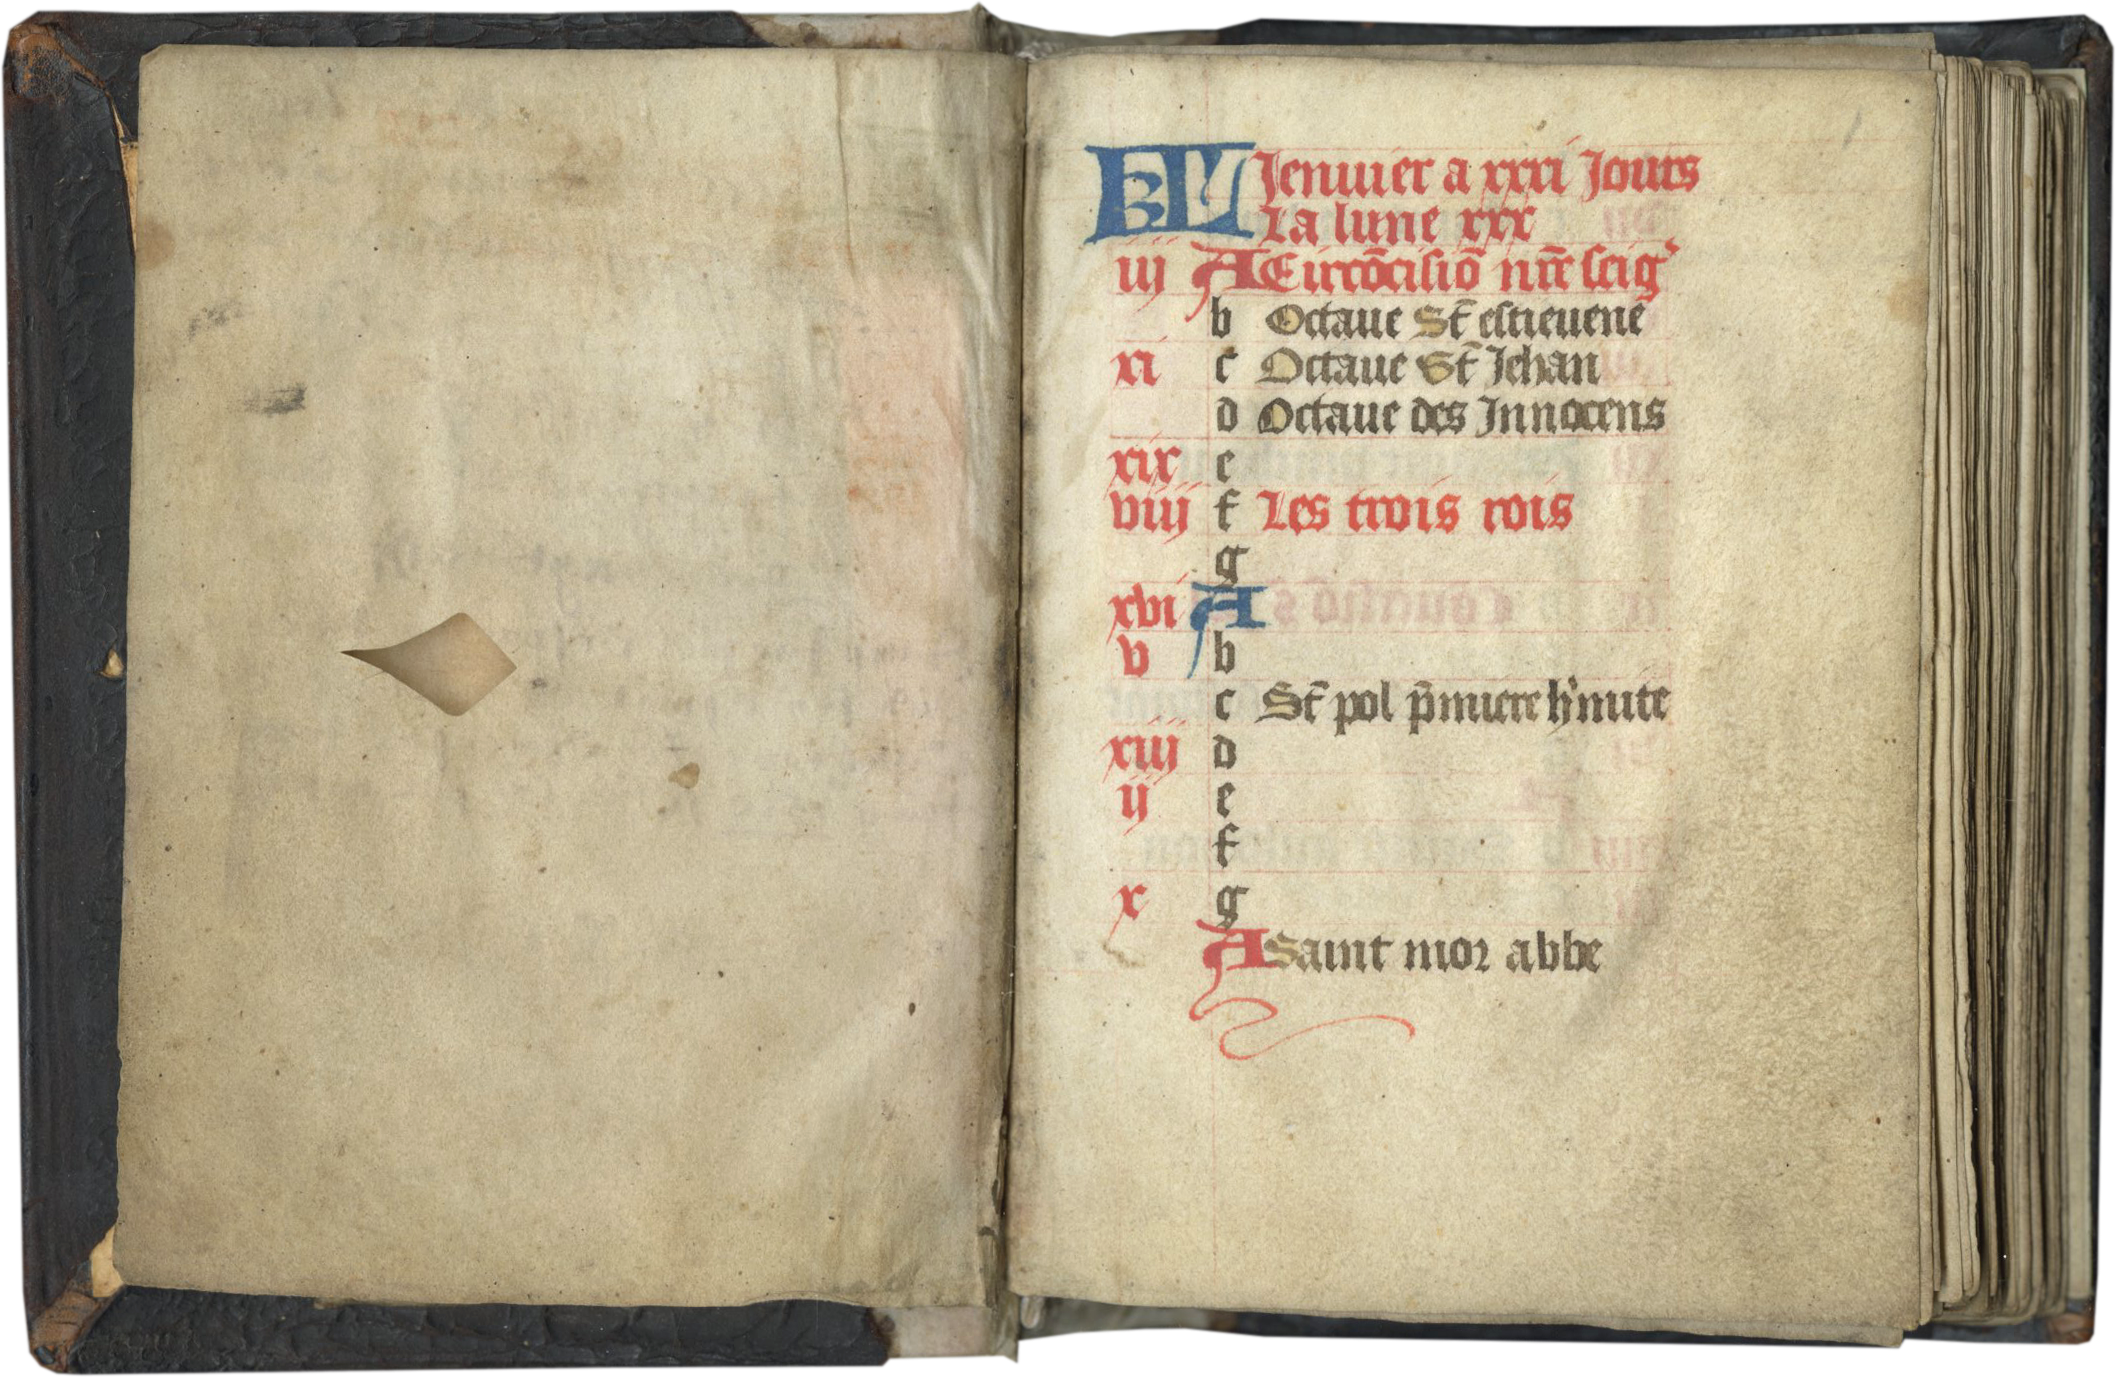 KL Jenuier a xxxi Jours
La lune xxx
iij A Circōcisiō nr̄e seigʳ
b Octaue St̄ estieuene
xi c Octaue St̄ Jehan
d Octaue des Innocens
xix e
viij f Les trois rois
g
xvi A
v b
c St̄ pol p̄miere h'mite
xiij d
ij e
f
x g
A Saint mor abbe